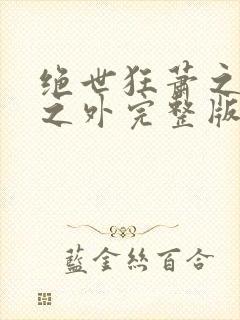 绝世狂萧之
之外完整版
藍金絲百合